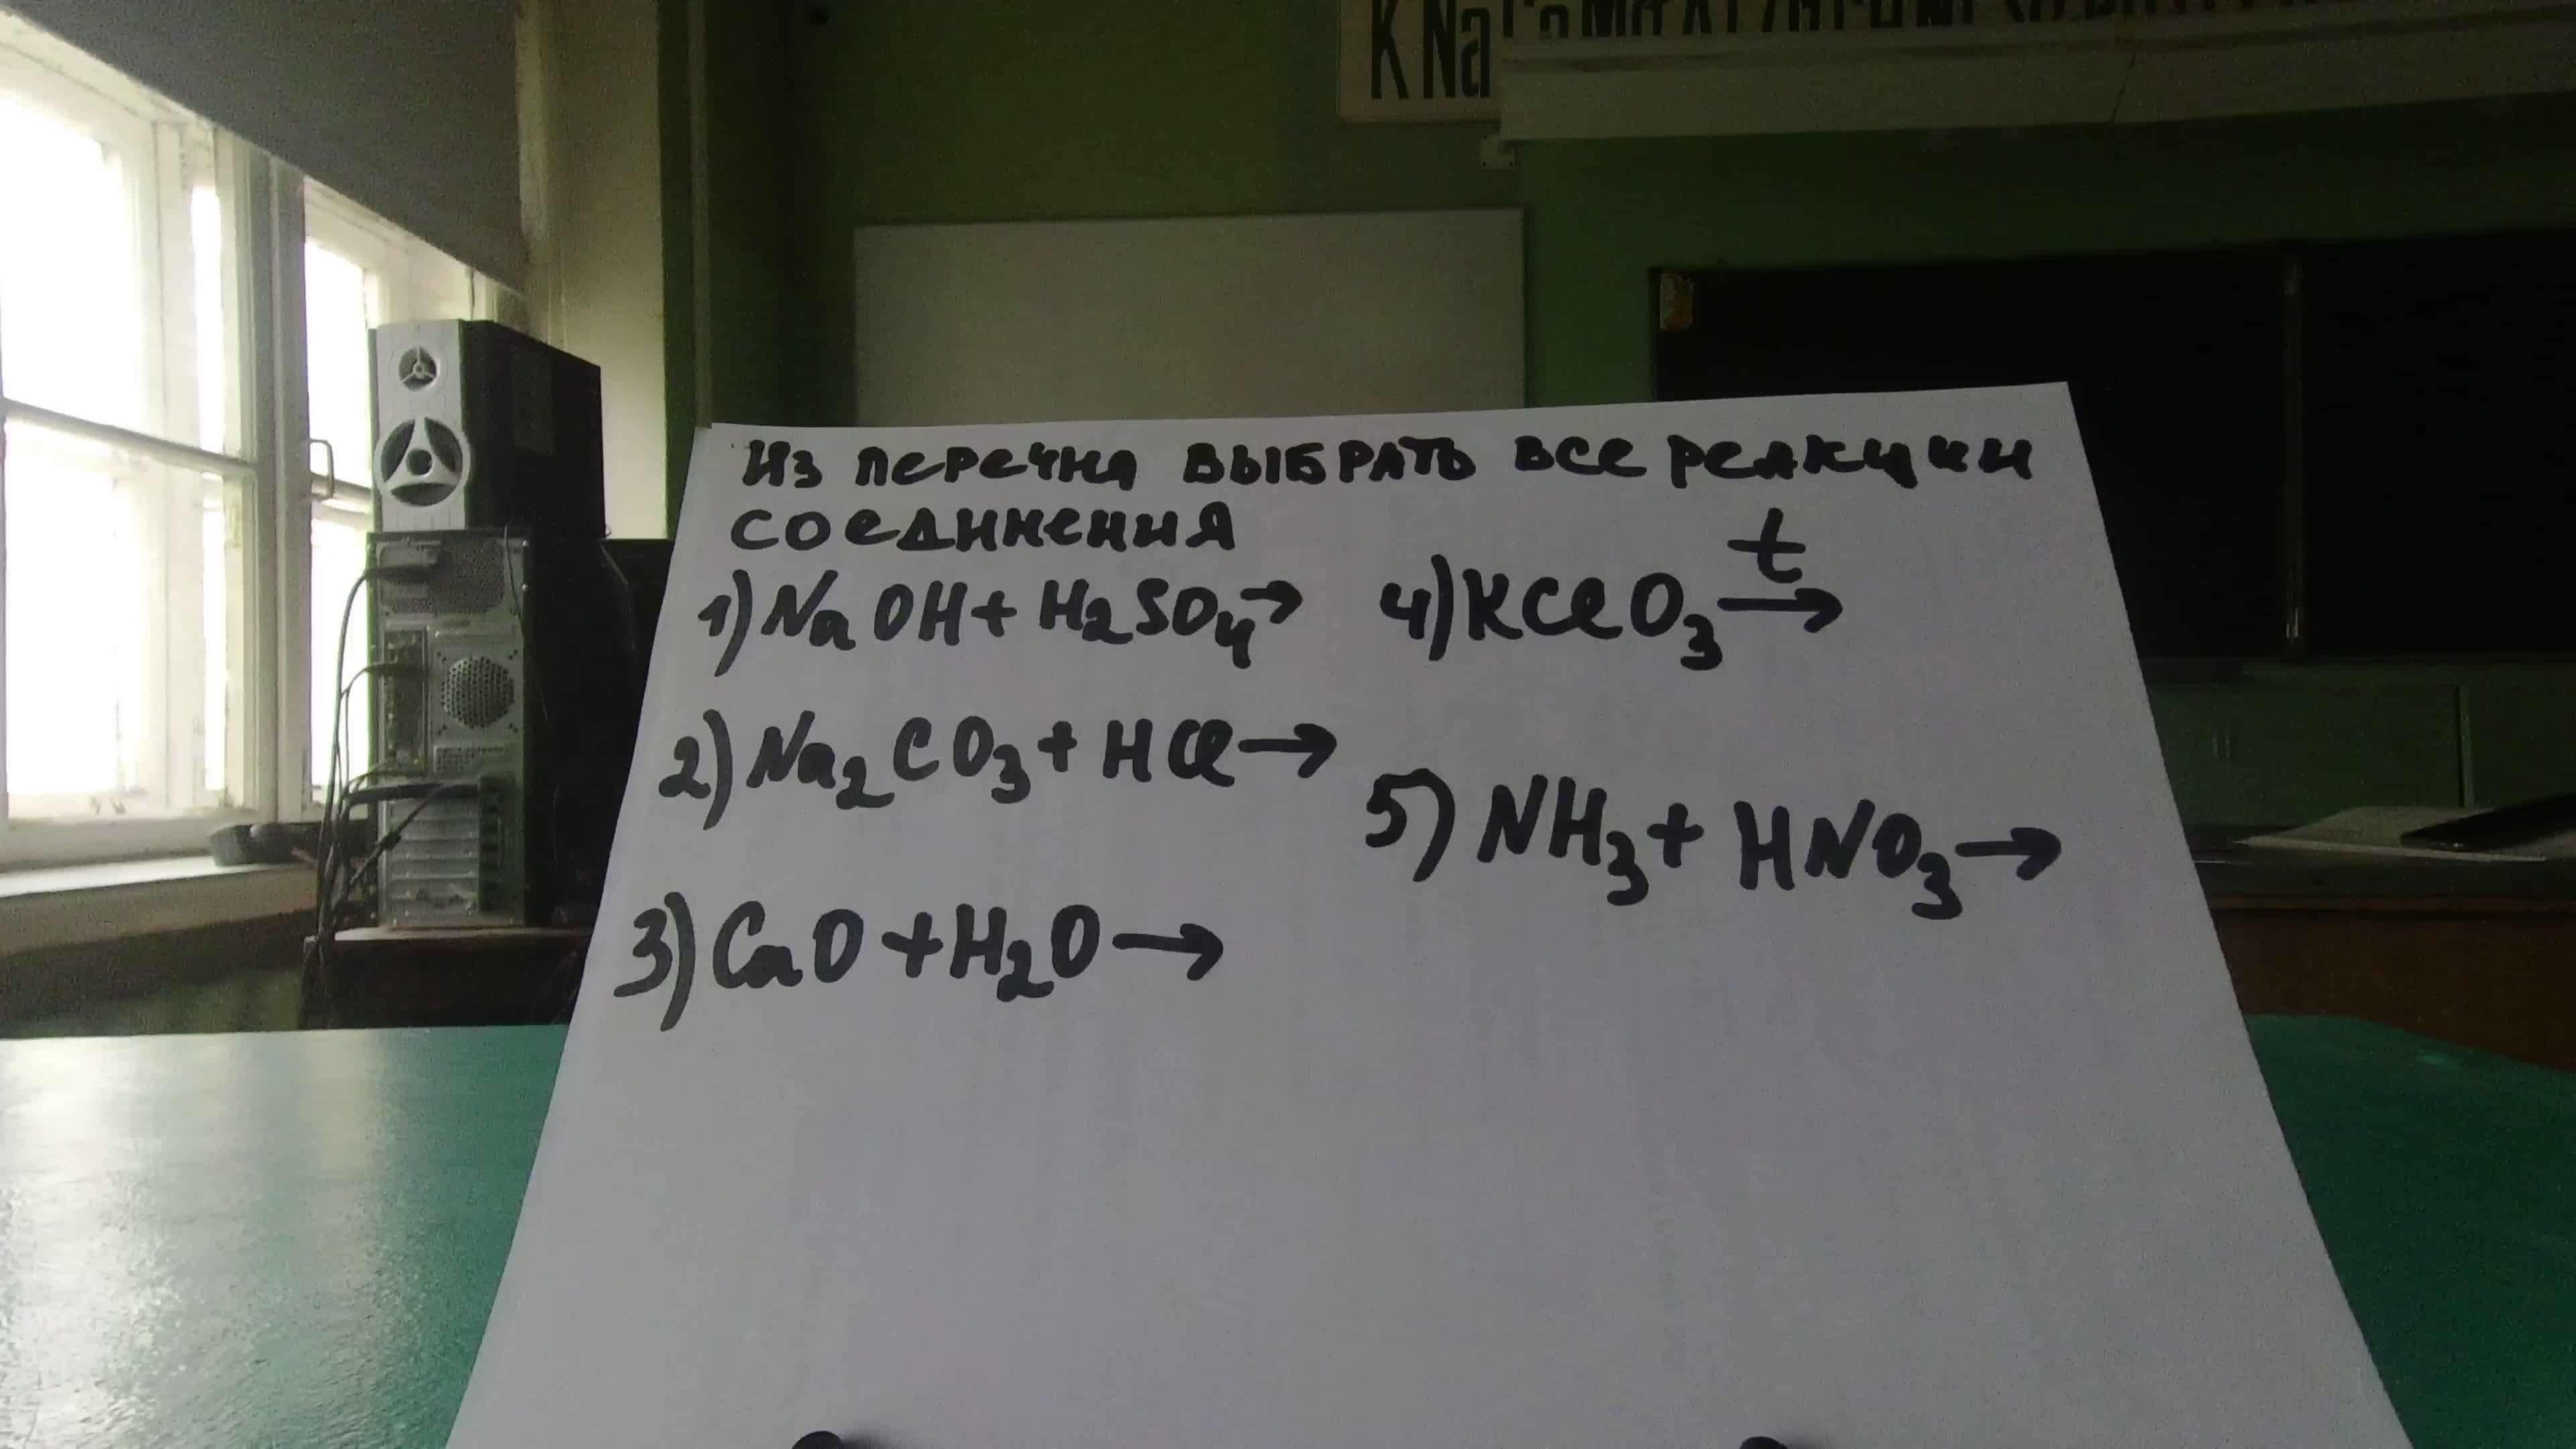 K Na
Из перечня выбрать все реакции
соединения
1) NaOH + H2SO4 →
2) Na2CO3 + HCl →
3) CaO + H2O →
t
4) KClO3 →
5) NH3 + HNO3 →